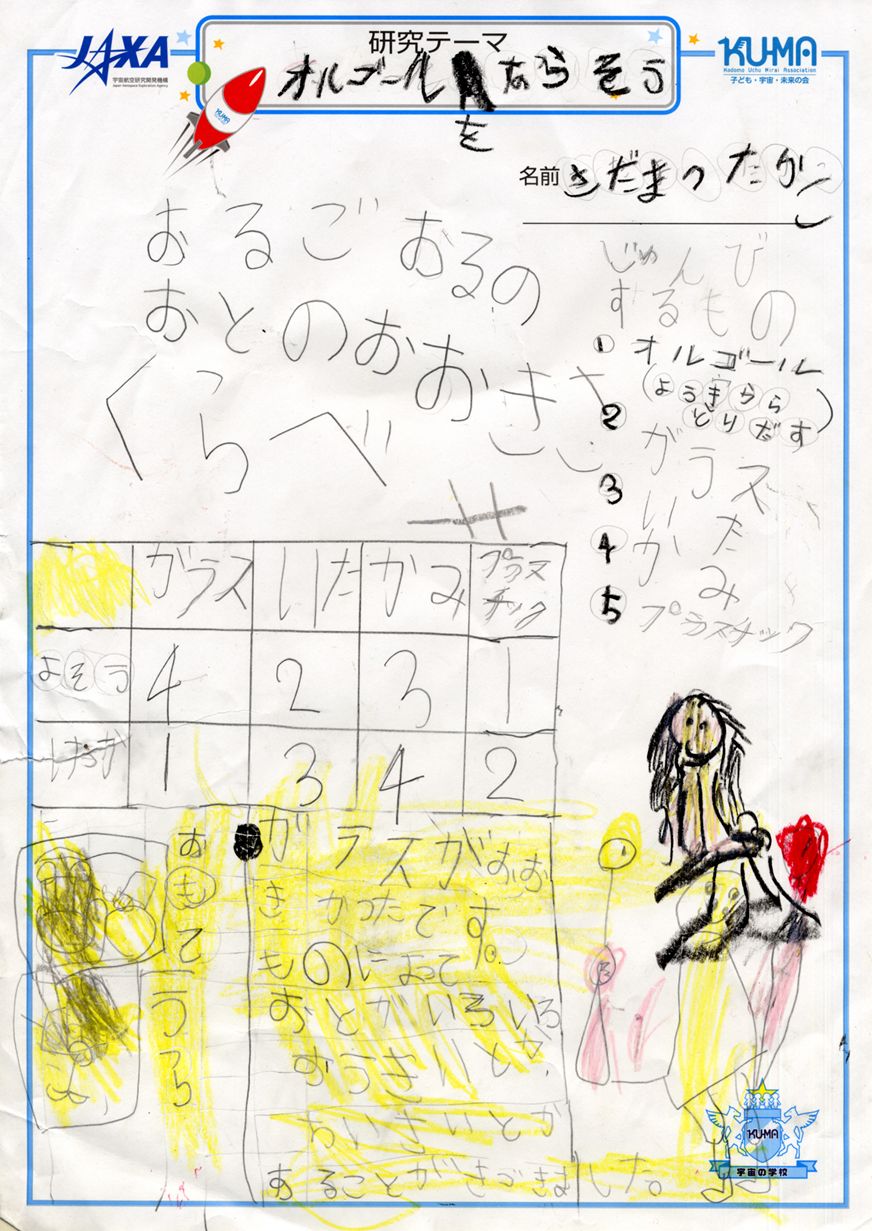 JAXA
宇宙航空研究開発機構
Japan Aerospace Exploration Agency
研究テーマ
オルゴール
を
ならそう
KU-MA
Kodomo Uchu Mirai Association
子ども・宇宙・未来の会
KU-MA
名前 さだまつ たかこ
おるごおるの
おとのおおきさ
くらべ
じゅんび
するもの
1 オルゴール
(ようきから
とりだす)
2 がラス
3 いた
4 かみ
5 プラスチック
がラス いた かみ プラスチック
よそう 4 2 3 1
けっか 1 3 4 2
おもて
うら
がラスがおお
きかったです。
ものによって
おとがいろいろ
おうきいとか、
ちいさいとか
あることがきづきました。
KU-MA
宇宙の学校